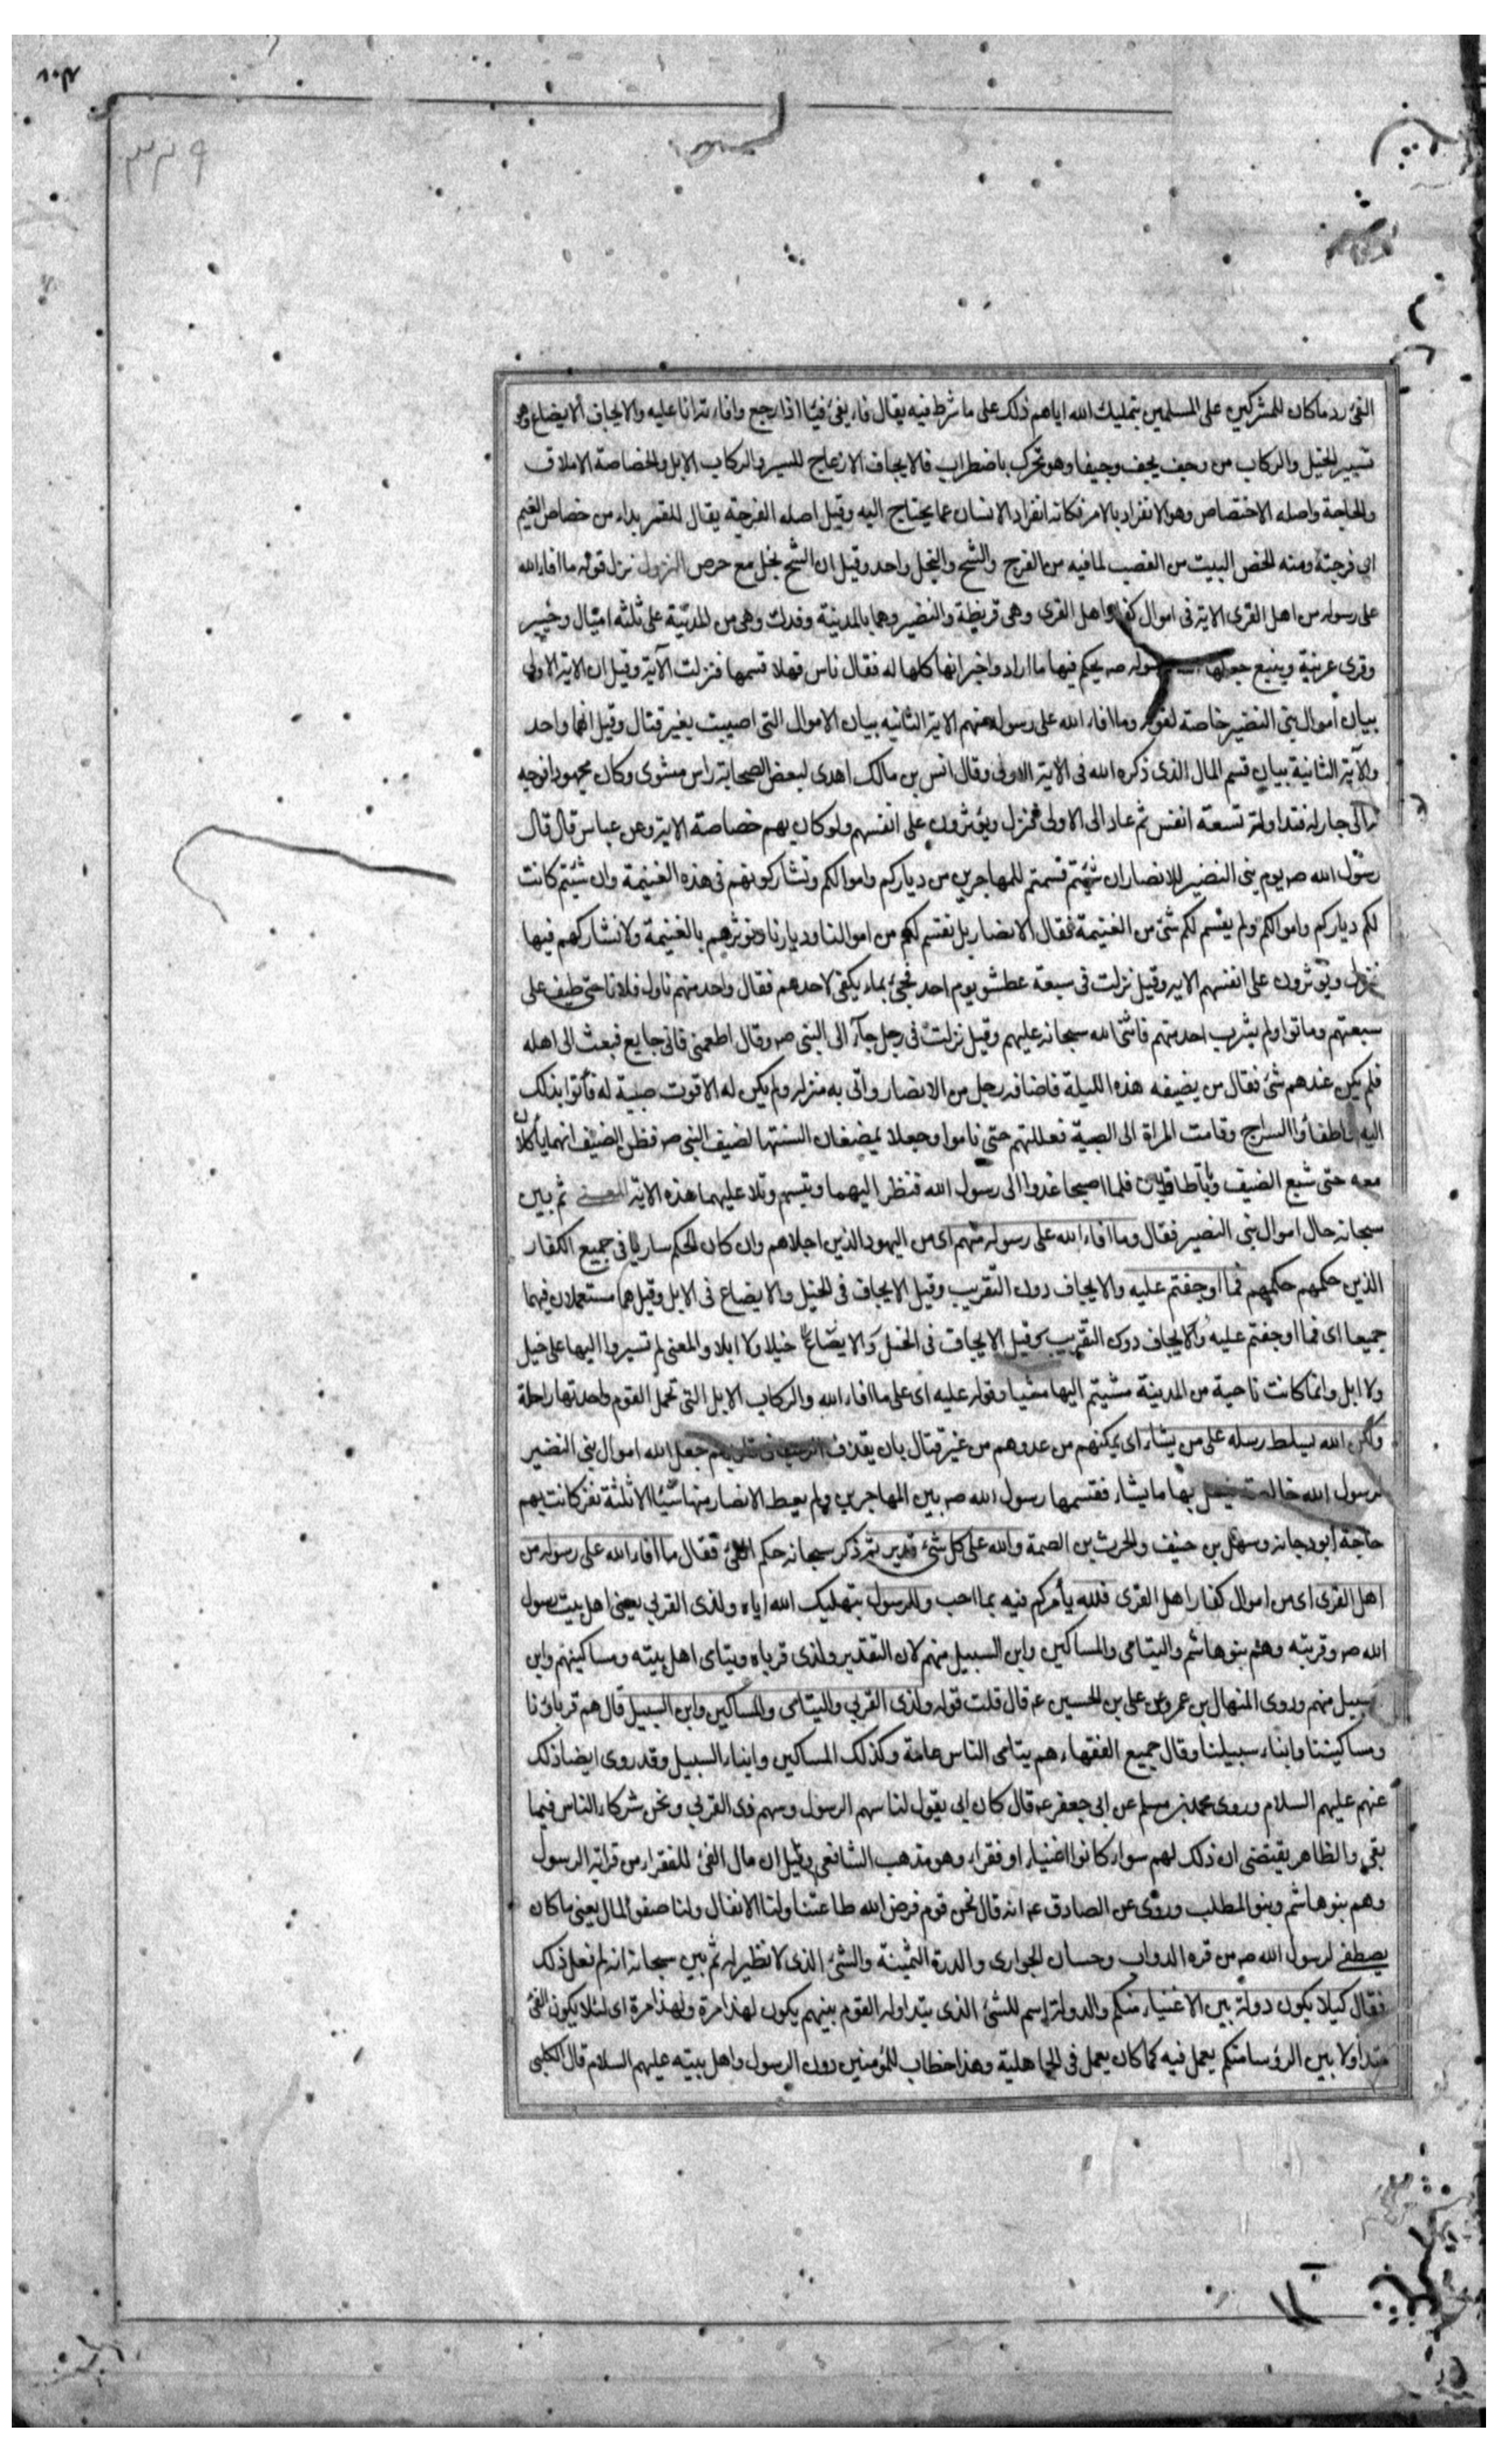 ٣٢٩
الفئ رد ما كان للمشركين على المسلمين بتمليك الله اياهم ذلك على ما شرط فيه يقال فاء يفئ فيئا اذا رجع وافاءته انا عليه والايجاف الايضاع وهو
تسيير الخيل والركاب من وجف يجف وجيفا وهو تحرك باضطراب فالايجاف الازعاج للسير والركاب الابل والخصاصة الاملاق
والحاجة واصله الاختصاص وهو الانفراد بالامر فكانه انفراد الانسان عما يحتاج اليه وقيل اصله الفرجة يقال للقمر بداء من خصاص الغيم
اى فرجته ومنه الخص البيت من القصب لما فيه من الفرج والشح والبخل واحد وقيل ان الشح بخل مع حرص النزول نزل قوله ما افاء الله
على رسوله من اهل القرى الاية فى اموال كفار اهل القرى وهى قريظة والنضير وهما بالمدينة وفدك وهى من المدينة على ثلثه اميال وخيبر
وقرى عرينة وينبع جعلها رسوله صه يحكم فيها ما اراد واخبر انها كلها له فقال ناس فهلا قسمها فنزلت الآية وقيل ان الاية الاولى
بيان اموال بنى النضير خاصة لقوله وما افاء الله على رسوله منهم الاية الثانية بيان الاموال التى اصيبت بغير قتال وقيل انهما واحد
والآية الثانية بيان قسم المال الذى ذكره الله فى الاية الاولى وقال انس بن مالك اهدى لبعض الصحابة راس مشوى وكان مجهودا فوجه
به الى جار له فتداولته تسعة انفس ثم عاد الى الاولى فنزل ويؤثرون على انفسهم ولو كان بهم خصاصة الاية وعن عباس قال قال
رسول الله صه يوم بنى النضير للانصار ان شئتم قسمتم للمهاجرين من دياركم واموالكم وتشاركونهم فى هذه الغنيمة وان شئتم كانت
لكم دياركم واموالكم ولم يقسم لكم شئ من الغنيمة فقال الانصار بل نقسم لهم من اموالنا وديارنا ونوثرهم بالغنيمة ولا نشاركهم فيها
فنزل ويؤثرون على انفسهم الاية وقيل نزلت فى سبعة عطشو يوم احد فجئ بماء يكفى لاحدهم فقال واحد منهم ناول فلانا حتى طيف على
سبعتهم وماتوا ولم يشرب احد منهم فاثنى الله سبحانه عليهم وقيل نزلت فى رجل جآء الى النبى صه وقال اطعمنى فانى جايع فبعث الى اهله
فلم يكن عندهم شئ فقال من يضيفه هذه الليلة فاضافه رجل من الانصار واتى به منزله ولم يكن له الا قوت صبية له فأتوا بذلك
اليه واطفاؤا السراج وقامت المراة الى الصبية فعللتهم حتى ناموا وجعلا يمضغان السنتها لضيف النبى صه فظن الضيف انهما يأكلان
معه حتى شبع الضيف وباتا طاويين فلما اصبحا غدوا الى رسول الله فنظر اليهما وتبسم وتلا عليهما هذه الاية المعنى ثم بين
سبحانه حال اموال بنى النضير فقال وما افاء الله على رسوله منهم اى من اليهود الذين اجلاهم وان كان الحكم ساريا فى جميع الكفار
الذين حكمهم حكمهم فما اوجفتم عليه والايجاف دون التقريب وقيل الايجاف فى الخيل والايضاع فى الابل وقيل هما مستعملان فيهما
جميعا اى فما اوجفتم عليه والايجاف دون التقريب وقيل الايجاف فى الخيل والايضاع خيلا ولا ابلا والمعنى لم تسيروا اليها على خيل
ولا ابل وانما كانت ناحية من المدينة مشيتم اليها مشيا وقوله عليه اى على ما افاء الله والركاب الابل التى تحمل القوم واحدتها راحلة
ولكن الله يسلط رسله على من يشاء اى يمكنهم من عدوهم من غير قتال بان يقذف الرعب فى قلوبهم جعل الله اموال بنى النضير
لرسول الله خالصة يفعل بها ما يشاء فقسمها رسول الله صه بين المهاجرين ولم يعط الانصار منها شيئا الا ثلثة نفر كانت بهم
حاجة ابو دجانه وسهل بن حنيف والحرث بن الصمة والله على كل شئ قدير ثم ذكر سبحانه حكم الفئ فقال ما افاء الله على رسوله من
اهل القرى اى من اموال كفار اهل القرى فلله يأمركم فيه بما احب وللرسول بتمليك الله اياه ولذى القربى يعنى اهل بيت رسول
الله صه وقربته وهم بنو هاشم واليتامى والمساكين وابن السبيل منهم لان التقدير ولذى قرباه ويتاى اهل بيته ومساكينهم وابن
سبيل منهم وروى المنهال بن عمرو عن على بن الحسين عه قال قلت قوله ولذى القربى واليتامى والمساكين وابن السبيل قال هم قربانا
ومساكيننا وابناء سبيلنا وقال جميع الفقهاء هم يتامى الناس عامة وكذلك المساكين وابناء السبيل وقد روى ايضا ذلك
عنهم عليهم السلام وروى محمد بن مسلم عن ابى جعفر عه قال كان ابى يقول لنا سهم الرسول وسهم ذى القربى ونحن شركاء الناس فيما
بقى والظاهر يقتضى ان ذلك لهم سواء كانوا اغنياء او فقراء وهو مذهب الشافعى وقيل ان مال الفئ للفقراء من قرابة الرسول
وهم بنو هاشم وبنو المطلب وروى عن الصادق عه انه قال نحن قوم فرض الله طاعتنا ولنا الانفال ولنا صفو المال يعنى ما كان
يصطفى لرسول الله صه من فره الدواب وحسان الجوارى والدرة الثمينة والشئ الذى لا نظير له ثم بين سبحانه انه لم فعل ذلك
فقال كيلا يكون دولة بين الاغنياء منكم والدولة اسم للشئ الذى يتداوله القوم بينهم يكون لهذا مرة ولهذا مرة اى لئلا يكون الفئ
متداولا بين الرؤسا منكم يعمل فيه كما كان يعمل فى الجاهلية وهذا خطاب للمؤمنين دون الرسول واهل بيته عليهم السلام قال الكلبى